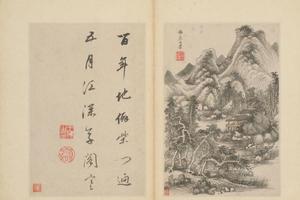 百年地僻柴門迥
五月江深草閣寒